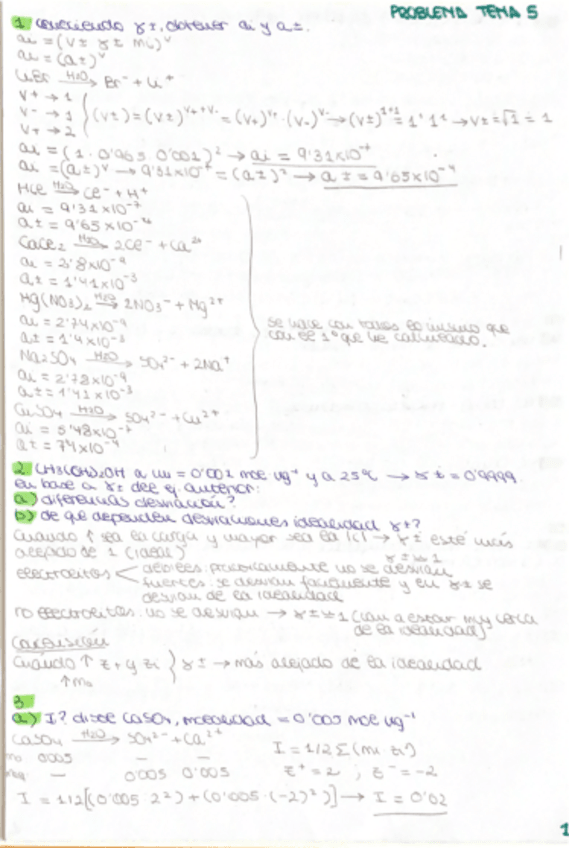 PROBLEMA TEMA 5
1 conociendo γ±, obtener ai y a±.
ai = (ν± γ± m0)^ν
ai = (a±)^ν
H2O Br⁻ +
ν+ → 1
ν- → 1
ν± → 2
(ν±) = (ν±)^ν+ + ν- = (ν+)^ν+ · (ν-)^ν- → (ν±)^1+1 = 1¹ 1¹ → ν± = √1 = 1
ai = (1 · 0'965 · 0'001)² → ai = 9'31x10⁻⁷
ai = (a±)^ν → 9'31x10⁻⁷ = (a±)² → a± = 9'65x10⁻⁴
HCl H2O→ Cl⁻ + H⁺
ai = 9'31x10⁻⁷
a± = 9'65x10⁻⁴
CaCl2 H2O→ 2Cl⁻ + Ca²⁺
ai = 2'8x10⁻⁹
a± = 1'41x10⁻³
Mg(NO3)2 H2O→ 2NO3⁻ + Mg²⁺
ai = 2'74x10⁻⁹
a± = 1'4x10⁻³
se hace con todos lo mismo que
con el 1º que he calculado.
Na2SO4 H2O→ SO4²⁻ + 2Na⁺
ai = 2'78x10⁻⁹
a± = 1'41x10⁻³
CuSO4 H2O→ SO4²⁻ + Cu²⁺
ai = 5'48x10⁻⁷
a± = 7'4x10⁻⁴
2 CH3(CH2)2OH a m = 0'002 mol kg⁻¹ y a 25ºC → γ± = 0'9999.
en base a γ± del ej. anterior:
a) diferencias desviación?
b) de qué dependen desviaciones idealidad γ±?
Cuando ↑ sea la carga y mayor sea la [c] → γ± esté más
alejado de 1 (ideal)
γ± ≈ 1
electrolitos débiles: prácticamente no se desvían
fuertes: se desvían fácilmente y en γ± se
desvían de la idealidad
no electrolitos: no se desvían → γ± ≈ 1 (van a estar muy cerca
de la idealidad)
Conclusión
Cuando ↑ z+ y z- } γ± → más alejado de la idealidad
↑ m0
3
a) I? disol CaSO4, molalidad = 0'005 mol kg⁻¹
CaSO4 H2O→ SO4²⁻ + Ca²⁺
I = 1/2 Σ(mi · zi²)
m0 0'005 — —
— 0'005 0'005
z⁺ = 2 ; z⁻ = -2
I = 1/2[(0'005 · 2²) + (0'005 · (-2)²)] → I = 0'02
1